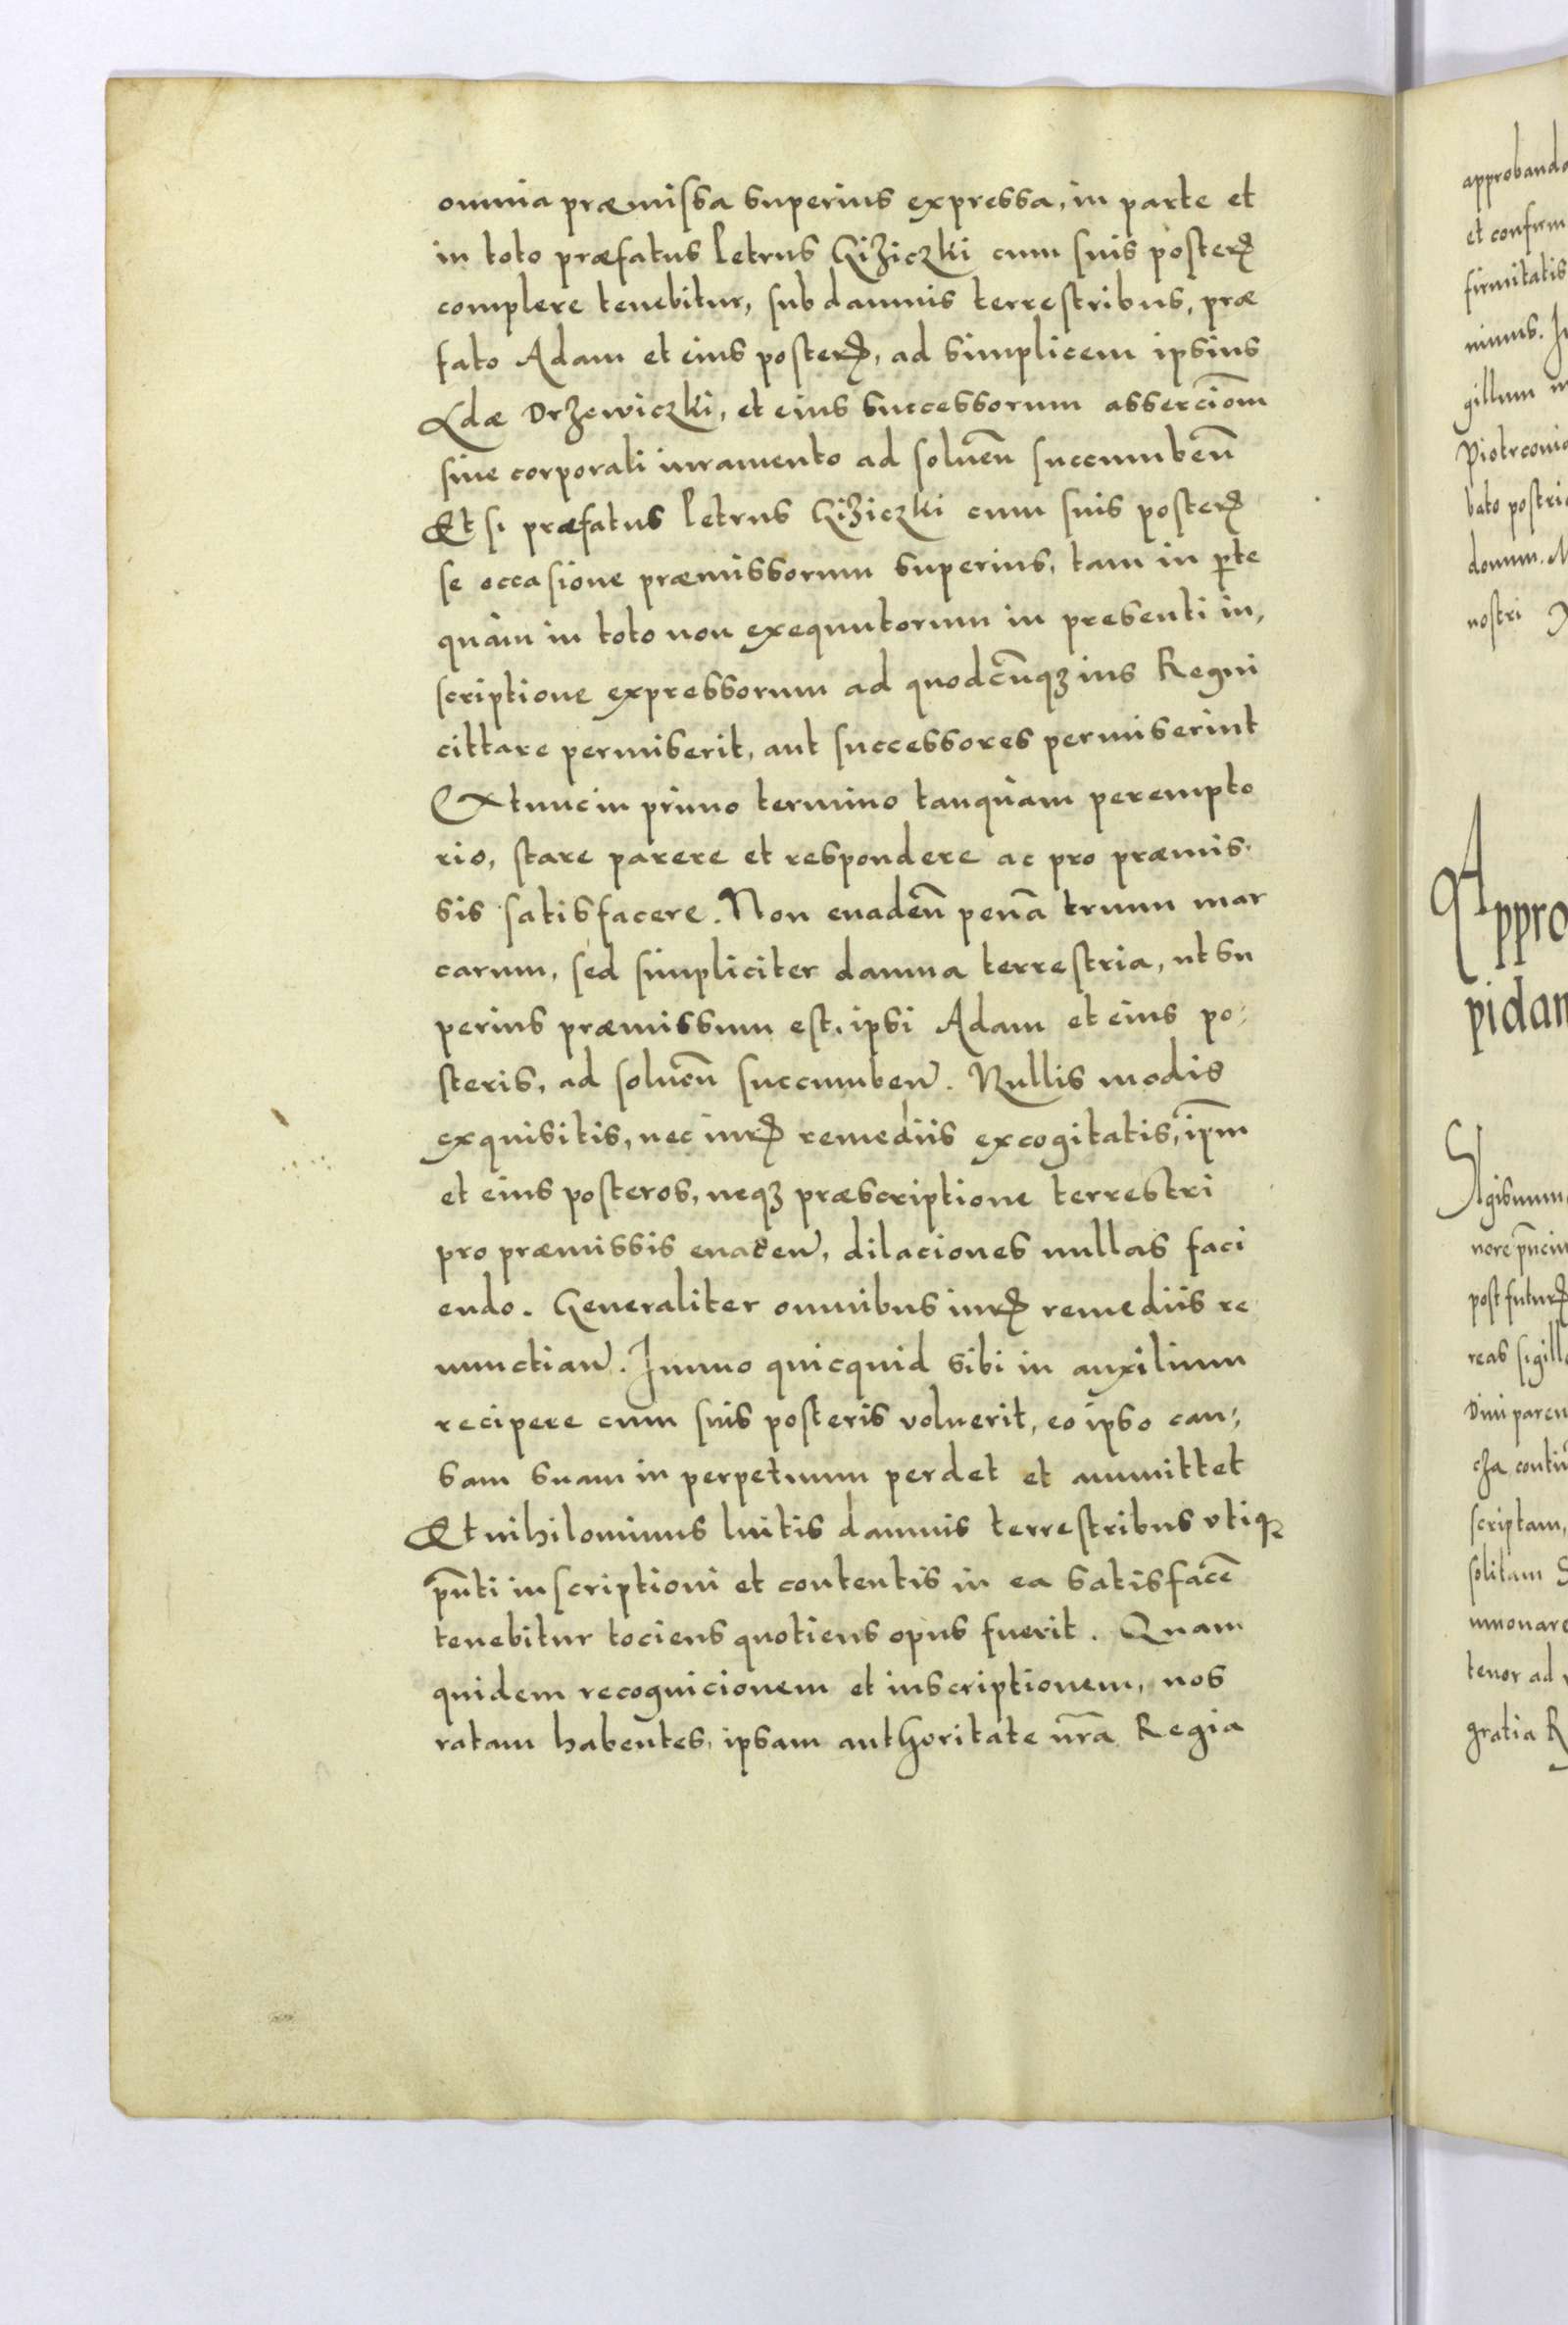 omnia præmissa superius expressa, in parte et
in toto præfatus Petrus Giziczki cum suis posterꝭ
complere tenebitur, sub damnis terrestribus, præ
fato Adam et eius posterꝭ, ad simplicem ipsius
Adæ Drzewiczki, et eius successorum asserciom̄
sine corporali iuramento ad soluen̄ succumben̄
Et si præfatus Petrus Giziczki cum suis posterꝭ
se occasione præmissorum superius, tam in ꝑte
quàm in toto non exequutorum in presenti in,
scriptione expressorum ad quodcūqꝫ ius Regni
cittare permiserit, aut successores permiserint
Extunc in primo termino tanquàm perempto
rio, stare parere et respondere ac pro præmis,
sis satisfacere. Non euaden̄ penā trium mar
carum, sed simpliciter damna terrestria, ut su
perius præmissum est, ipsi Adam et eius po,
steris, ad soluen̄ succumben̄. Nullis modis
exquisitis, nec iurꝭ remediis excogitatis, ip̄m
et eius posteros, neqꝫ præscriptione terrestri
pro præmissis euaden̄, dilaciones nullas faci
endo. Generaliter omnibus iurꝭ remediis re
nunctian̄. Immo quicquid sibi in auxilium
recipere cum suis posteris voluerit, eo ipso cau,
sam suam in perpetuum perdet et ammittet
Et nihilominus luitis damnis terrestribus vtiqꝫ
pn̄ti inscriptioni et contentis in ea satisfacē
tenebitur tociens quotiens opus fuerit. Quam
quidem recognicionem et inscriptionem, nos
ratam habentes, ipsam authoritate nr̄a Regia
approbanda
et confirm
firmitatis
nimus. In
gillum
Piotrcoui
bato postri
donum. M
nostri
Appro
pidan
Sigismun
nore pn̄ciu
post futurꝭ
reas sigill
Diui paren
cza contin̄
scriptam,
solitam S
nmonare
tenor ad
gratia R